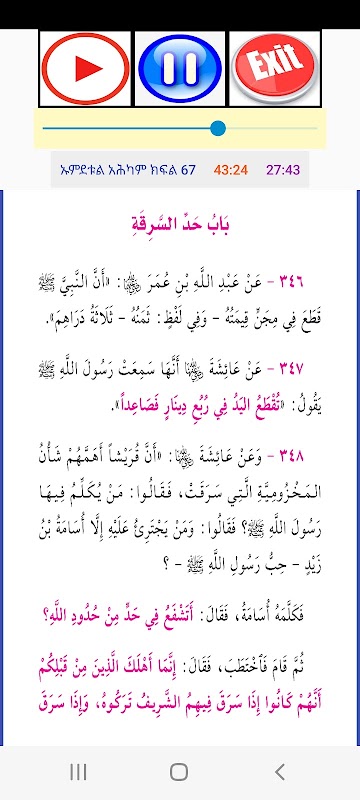 Exit
ኡምደቱል አሕካም ክፍል 67 43:24 27:43
بَابُ حَدِّ السَّرِقَةِ
٣٤٦ - عَنْ عَبْدِ اللَّهِ بْنِ عُمَرَ ﵄: «أَنَّ النَّبِيَّ ﷺ
قَطَعَ فِي مِجَنٍّ قِيمَتُهُ - وَفِي لَفْظٍ: ثَمَنُهُ - ثَلَاثَةُ دَرَاهِمَ».
٣٤٧ - عَنْ عَائِشَةَ ﵂ أَنَّهَا سَمِعَتْ رَسُولَ اللَّهِ ﷺ
يَقُولُ: «تُقْطَعُ اليَدُ فِي رُبُعِ دِينَارٍ فَصَاعِداً».
٣٤٨ - وَعَنْ عَائِشَةَ ﵂: «أَنَّ قُرَيْشاً أَهَمَّهُمْ شَأْنُ
المَخْزُومِيَّةِ الَّتِي سَرَقَتْ، فَقَالُوا: مَنْ يُكَلِّمُ فِيهَا
رَسُولَ اللَّهِ ﷺ؟ فَقَالُوا: وَمَنْ يَجْتَرِئُ عَلَيْهِ إِلَّا أُسَامَةُ بْنُ
زَيْدٍ - حِبُّ رَسُولِ اللَّهِ ﷺ - ؟
فَكَلَّمَهُ أُسَامَةُ، فَقَالَ: أَتَشْفَعُ فِي حَدٍّ مِنْ حُدُودِ اللَّهِ؟
ثُمَّ قَامَ فَاخْتَطَبَ، فَقَالَ: إِنَّمَا أَهْلَكَ الَّذِينَ مِنْ قَبْلِكُمْ
أَنَّهُمْ كَانُوا إِذَا سَرَقَ فِيهِمُ الشَّرِيفُ تَرَكُوهُ، وَإِذَا سَرَقَ